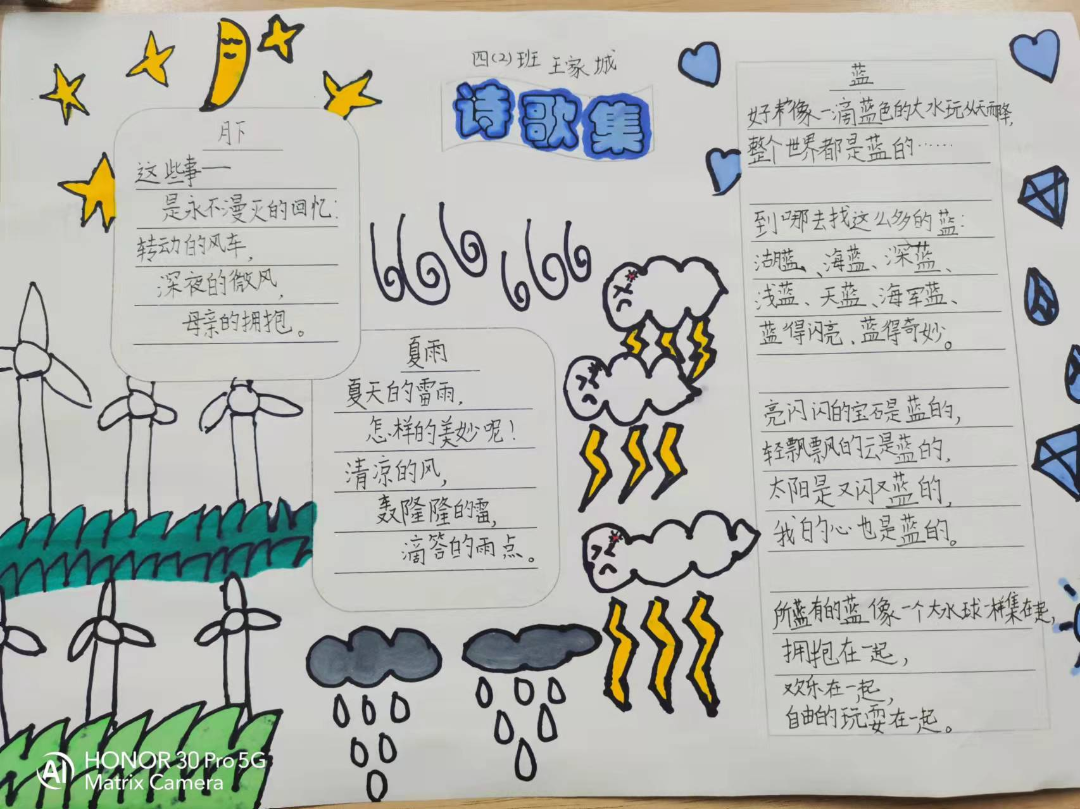 四(2)班 王家城
诗歌集
月下
这些事——
是永不漫灭的回忆:
转动的风车,
深夜的微风,
母亲的拥抱。
夏雨
夏天的雷雨,
怎样的美妙呢!
清凉的风,
轰隆隆的雷,
滴答的雨点。
蓝
好像一滴蓝色的大水玩从天而降,
整个世界都是蓝的……
到哪去找这么多的蓝:
湖蓝、海蓝、深蓝、
浅蓝、天蓝、海军蓝、
蓝得闪亮、蓝得奇妙。
亮闪闪的宝石是蓝的,
轻飘飘的云是蓝的,
太阳是又闪又蓝的,
我的心也是蓝的。
所有的蓝像一个大水球一样集在一起,
拥抱在一起,
欢乐在一起,
自由的玩耍在一起。
AI HONOR 30 Pro 5G
Matrix Camera